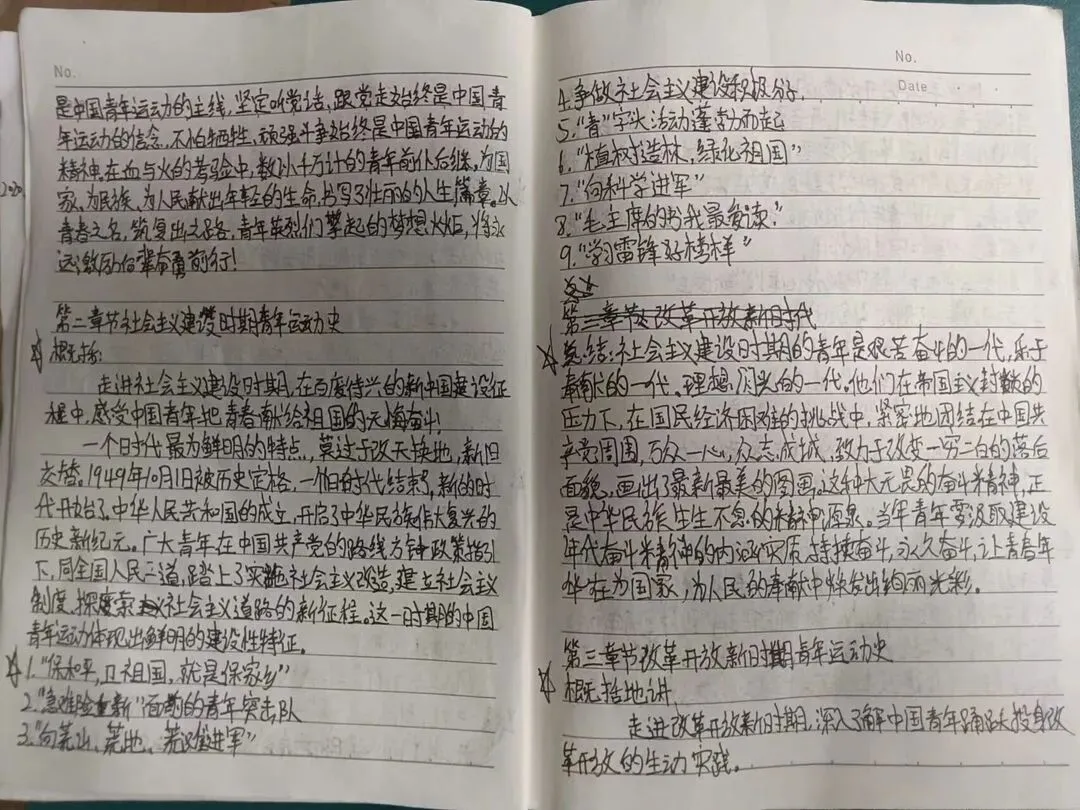 No.
是中国青年运动的主线,坚定听党话、跟党走始终是中国青
年运动的信念,不怕牺牲、顽强斗争始终是中国青年运动的
精神,在血与火的考验中,数以千万计的青年前仆后继,为国
家、为民族、为人民献出年轻的生命,书写了壮丽的人生篇章。以
青春之名,筑复出之路,青年英烈们擎起的梦想火炬,将永
远激励后辈奋勇前行!
第二章节社会主义建设时期青年运动史
概括:
走进社会主义建设时期,在百废待兴的新中国建设征
程中,感受中国青年把青春献给祖国的无悔奋斗!
一个时代最为鲜明的特点,莫过于改天换地,新旧
交替。1949年10月1日被历史定格,一个旧时代结束了,新的时
代开始了。中华人民共和国的成立,开启了中华民族伟大复兴的
历史新纪元。广大青年在中国共产党的路线方针政策指引
下,同全国人民一道,踏上了实施社会主义改造,建立社会主义
制度,探索社会主义道路的新征程。这一时期的中国
青年运动体现出鲜明的建设性特征。
1.“保和平,卫祖国,就是保家乡”
2.“急难险重新”面前的青年突击队
3.“向荒山、荒地、荒滩进军”
No.
Date
4.争做社会主义建设积极分子.
5.“青”字头活动蓬勃而起
6.“植树造林,绿化祖国”
7.“向科学进军”
8.“毛主席的书我最爱读”
9.“学习雷锋好榜样”
第三章节改革开放新时代
总结:社会主义建设时期的青年是艰苦奋斗的一代,乐于
奉献的一代,理想闪光的一代,他们在帝国主义封锁的
压力下,在国民经济困难的挑战中,紧密地团结在中国共
产党周围,万众一心,众志成城,致力于改变一穷二白的落后
面貌,画出了最新最美的图画。这种大无畏的奋斗精神,正
是中华民族生生不息的精神源泉。当年青年要汲取建设
年代奋斗精神的内涵实质,持续奋斗,永久奋斗,让青春年
华在为国家,为人民的奉献中焕发出绚丽光彩.
第三章节改革开放新时期青年运动史
概括地讲
走进改革开放新时期,深入了解中国青年踊跃投身改
革开放的生动实践.